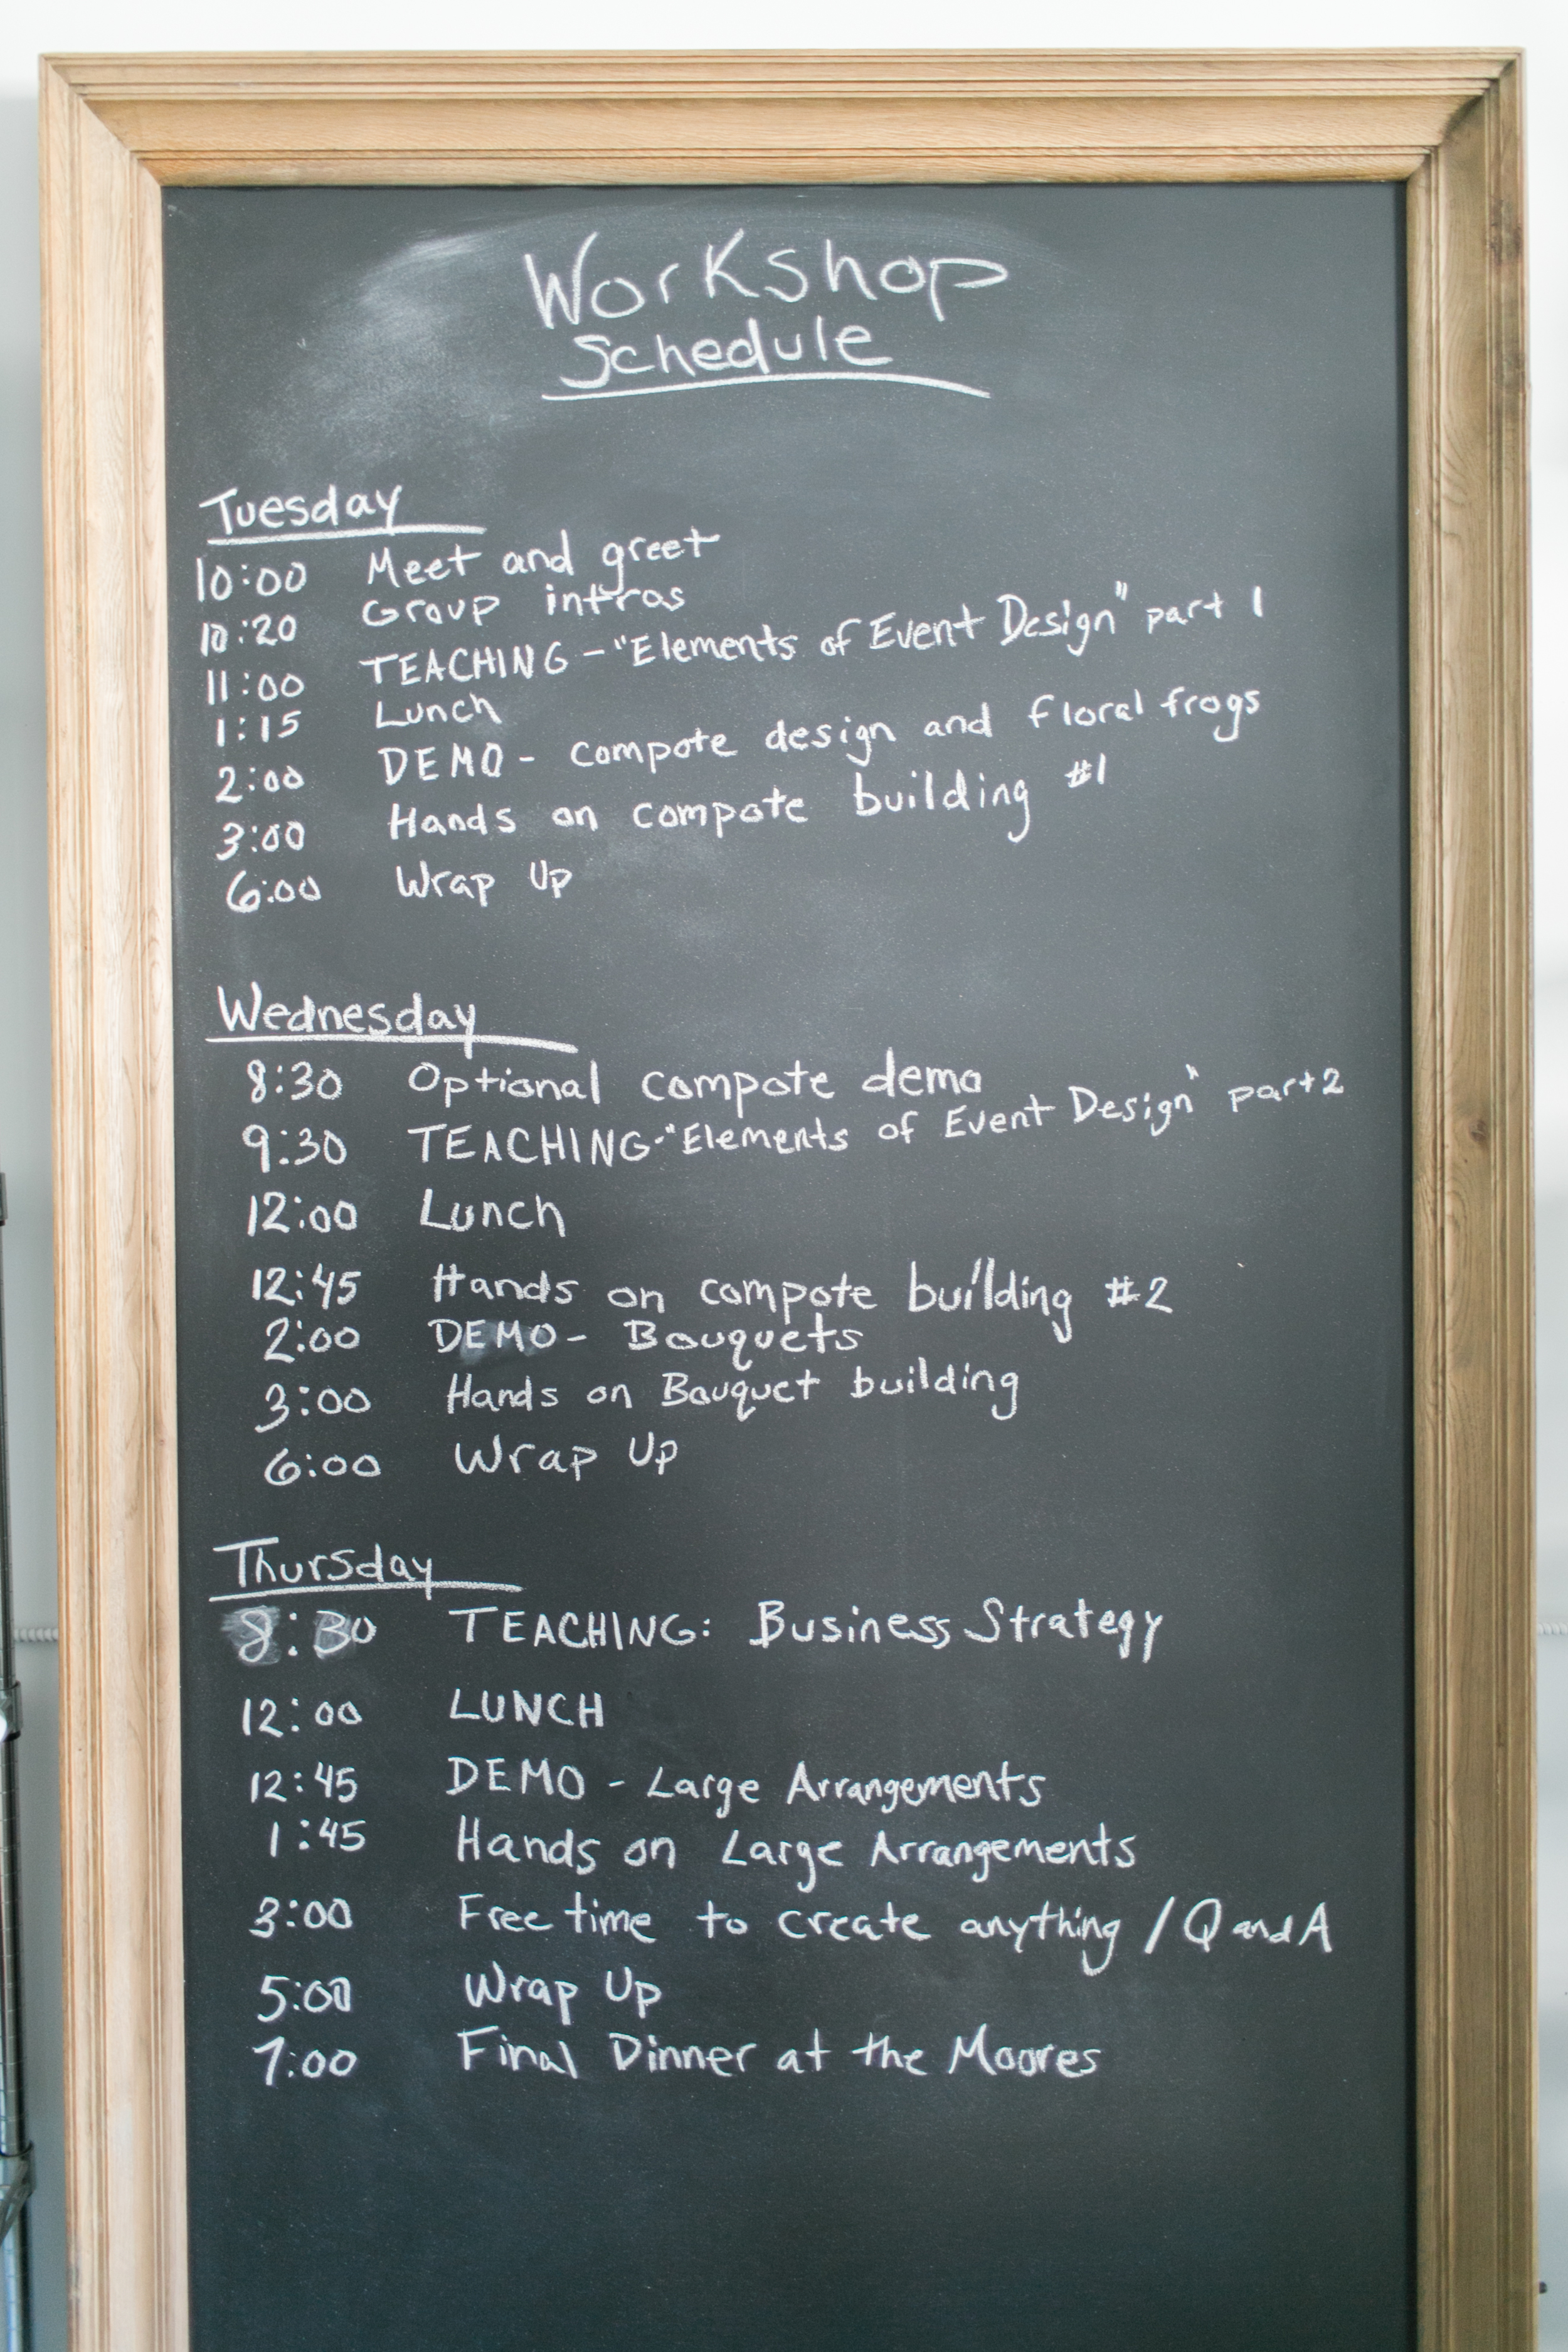 Workshop
Schedule
Tuesday
10:00 Meet and greet
10:20 Group intros
11:00 TEACHING - "Elements of Event Design" part 1
1:15 Lunch
2:00 DEMO - compote design and floral frogs
3:00 Hands on compote building #1
6:00 Wrap Up
Wednesday
8:30 Optional compote demo
9:30 TEACHING - "Elements of Event Design" part 2
12:00 Lunch
12:45 Hands on compote building #2
2:00 DEMO - Bouquets
3:00 Hands on Bouquet building
6:00 Wrap Up
Thursday
8:30 TEACHING: Business Strategy
12:00 LUNCH
12:45 DEMO - Large Arrangements
1:45 Hands on Large Arrangements
3:00 Free time to create anything / Q and A
5:00 Wrap Up
7:00 Final Dinner at the Moores